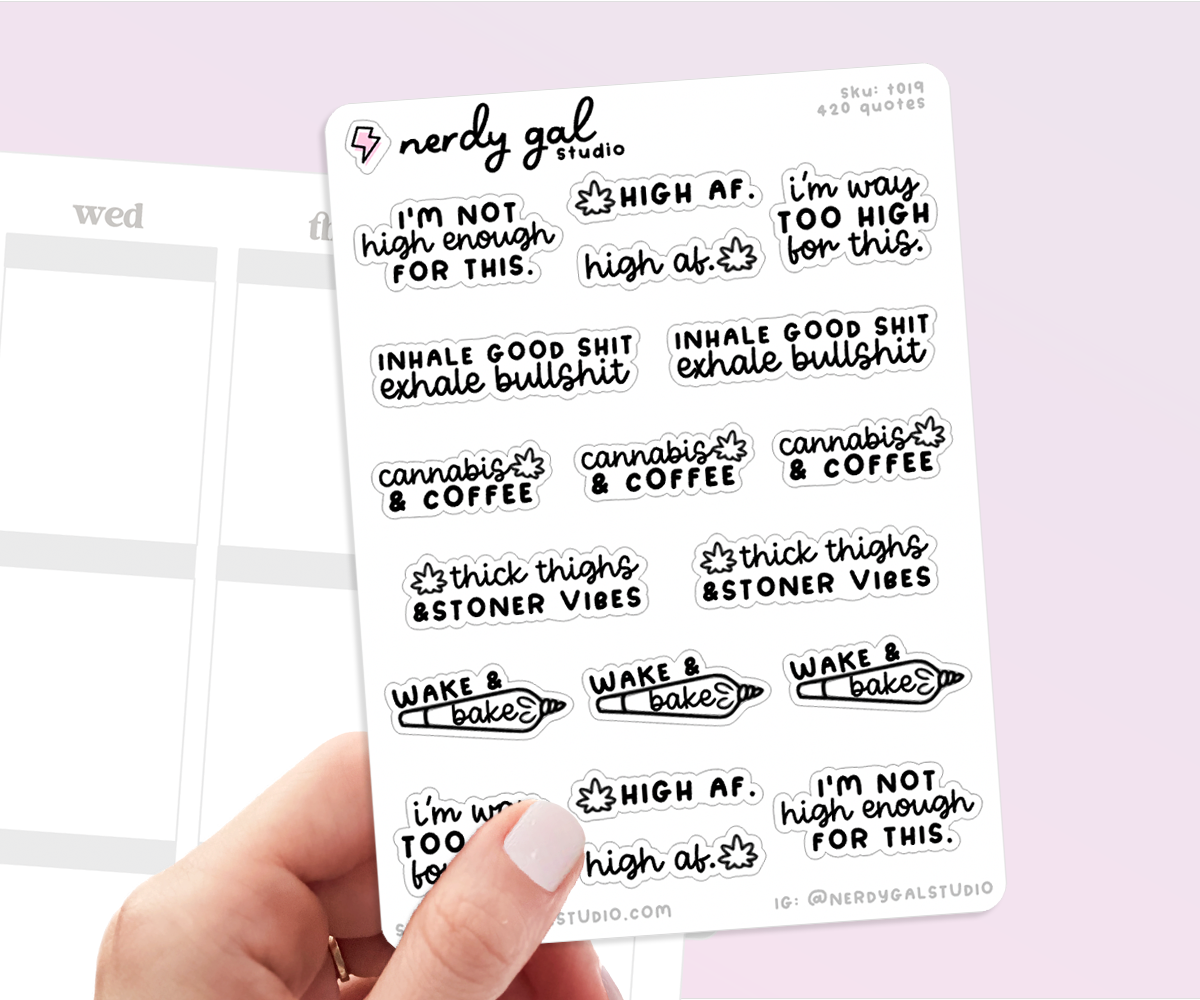 wed
nerdy gal
studio
sku: t019
420 quotes
I'M NOT
high enough
FOR THIS.
HIGH AF.
high af.
i'm way
TOO HIGH
for this.
INHALE GOOD SHIT
exhale bullshit
INHALE GOOD SHIT
exhale bullshit
cannabis
& COFFEE
cannabis
& COFFEE
cannabis
& COFFEE
thick thighs
&STONER VIBES
thick thighs
&STONER VIBES
WAKE &
bake
WAKE &
bake
WAKE &
bake
i'm
TOO
HIGH AF.
high af.
I'M NOT
high enough
FOR THIS.
STUDIO.COM
IG: @NERDYGALSTUDIO